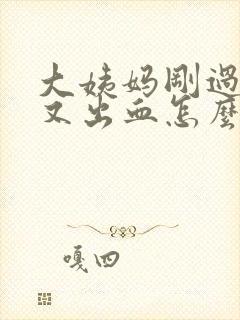 大姨妈刚過
又出血怎麽
嘎四